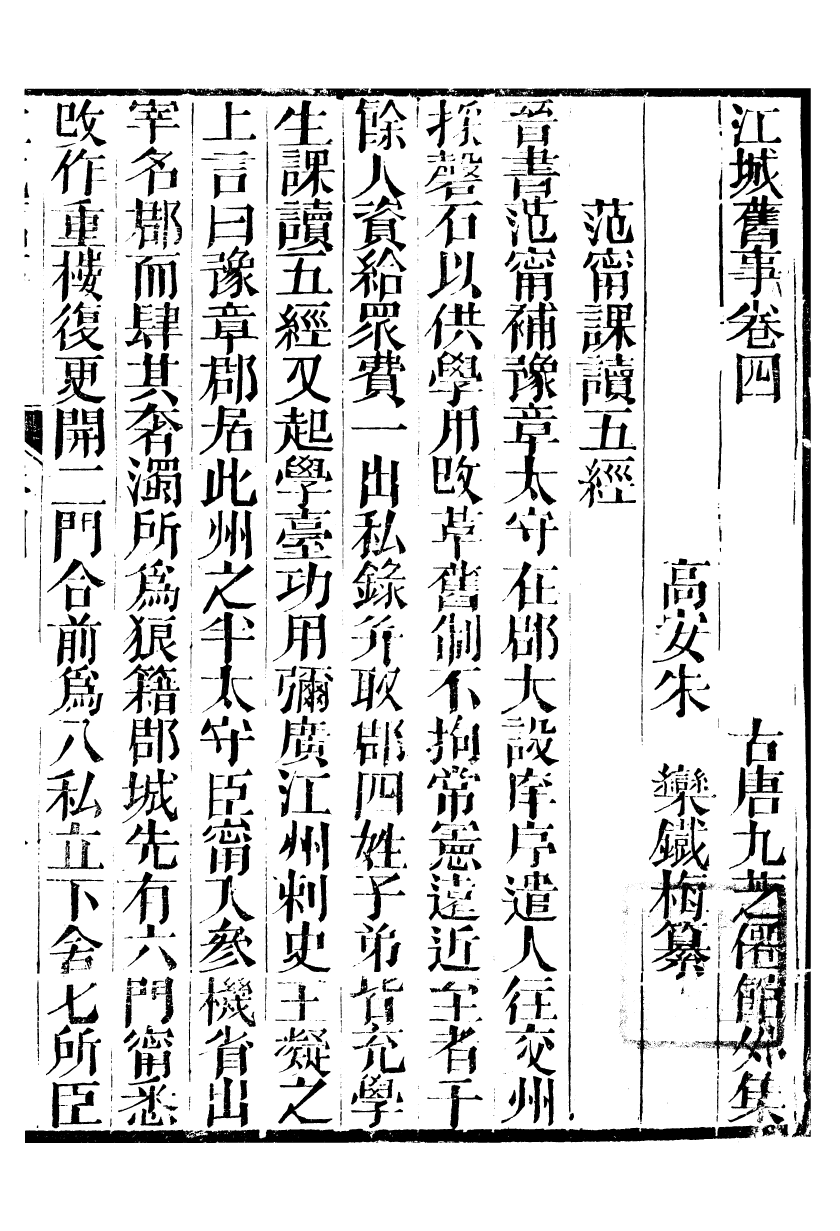 江城舊事卷四　古唐九芝僊館外集
高安朱　欒鐵梅纂
范甯課讀五經
晉書范甯補豫章太守在郡大設庠序遣人往交州
採磬石以供學用改革舊制不拘常憲遠近至者千
餘人資給眾費一出私錄并取郡四姓子弟皆充學
生課讀五經又起學臺功用彌廣江州刺史王凝之
上言曰豫章郡居此州之半太守臣甯入參機省出
宰名郡而肆其奢濁所為狼籍郡城先有六門甯悉
改作重樓復更開二門合前為八私立下舍七所臣